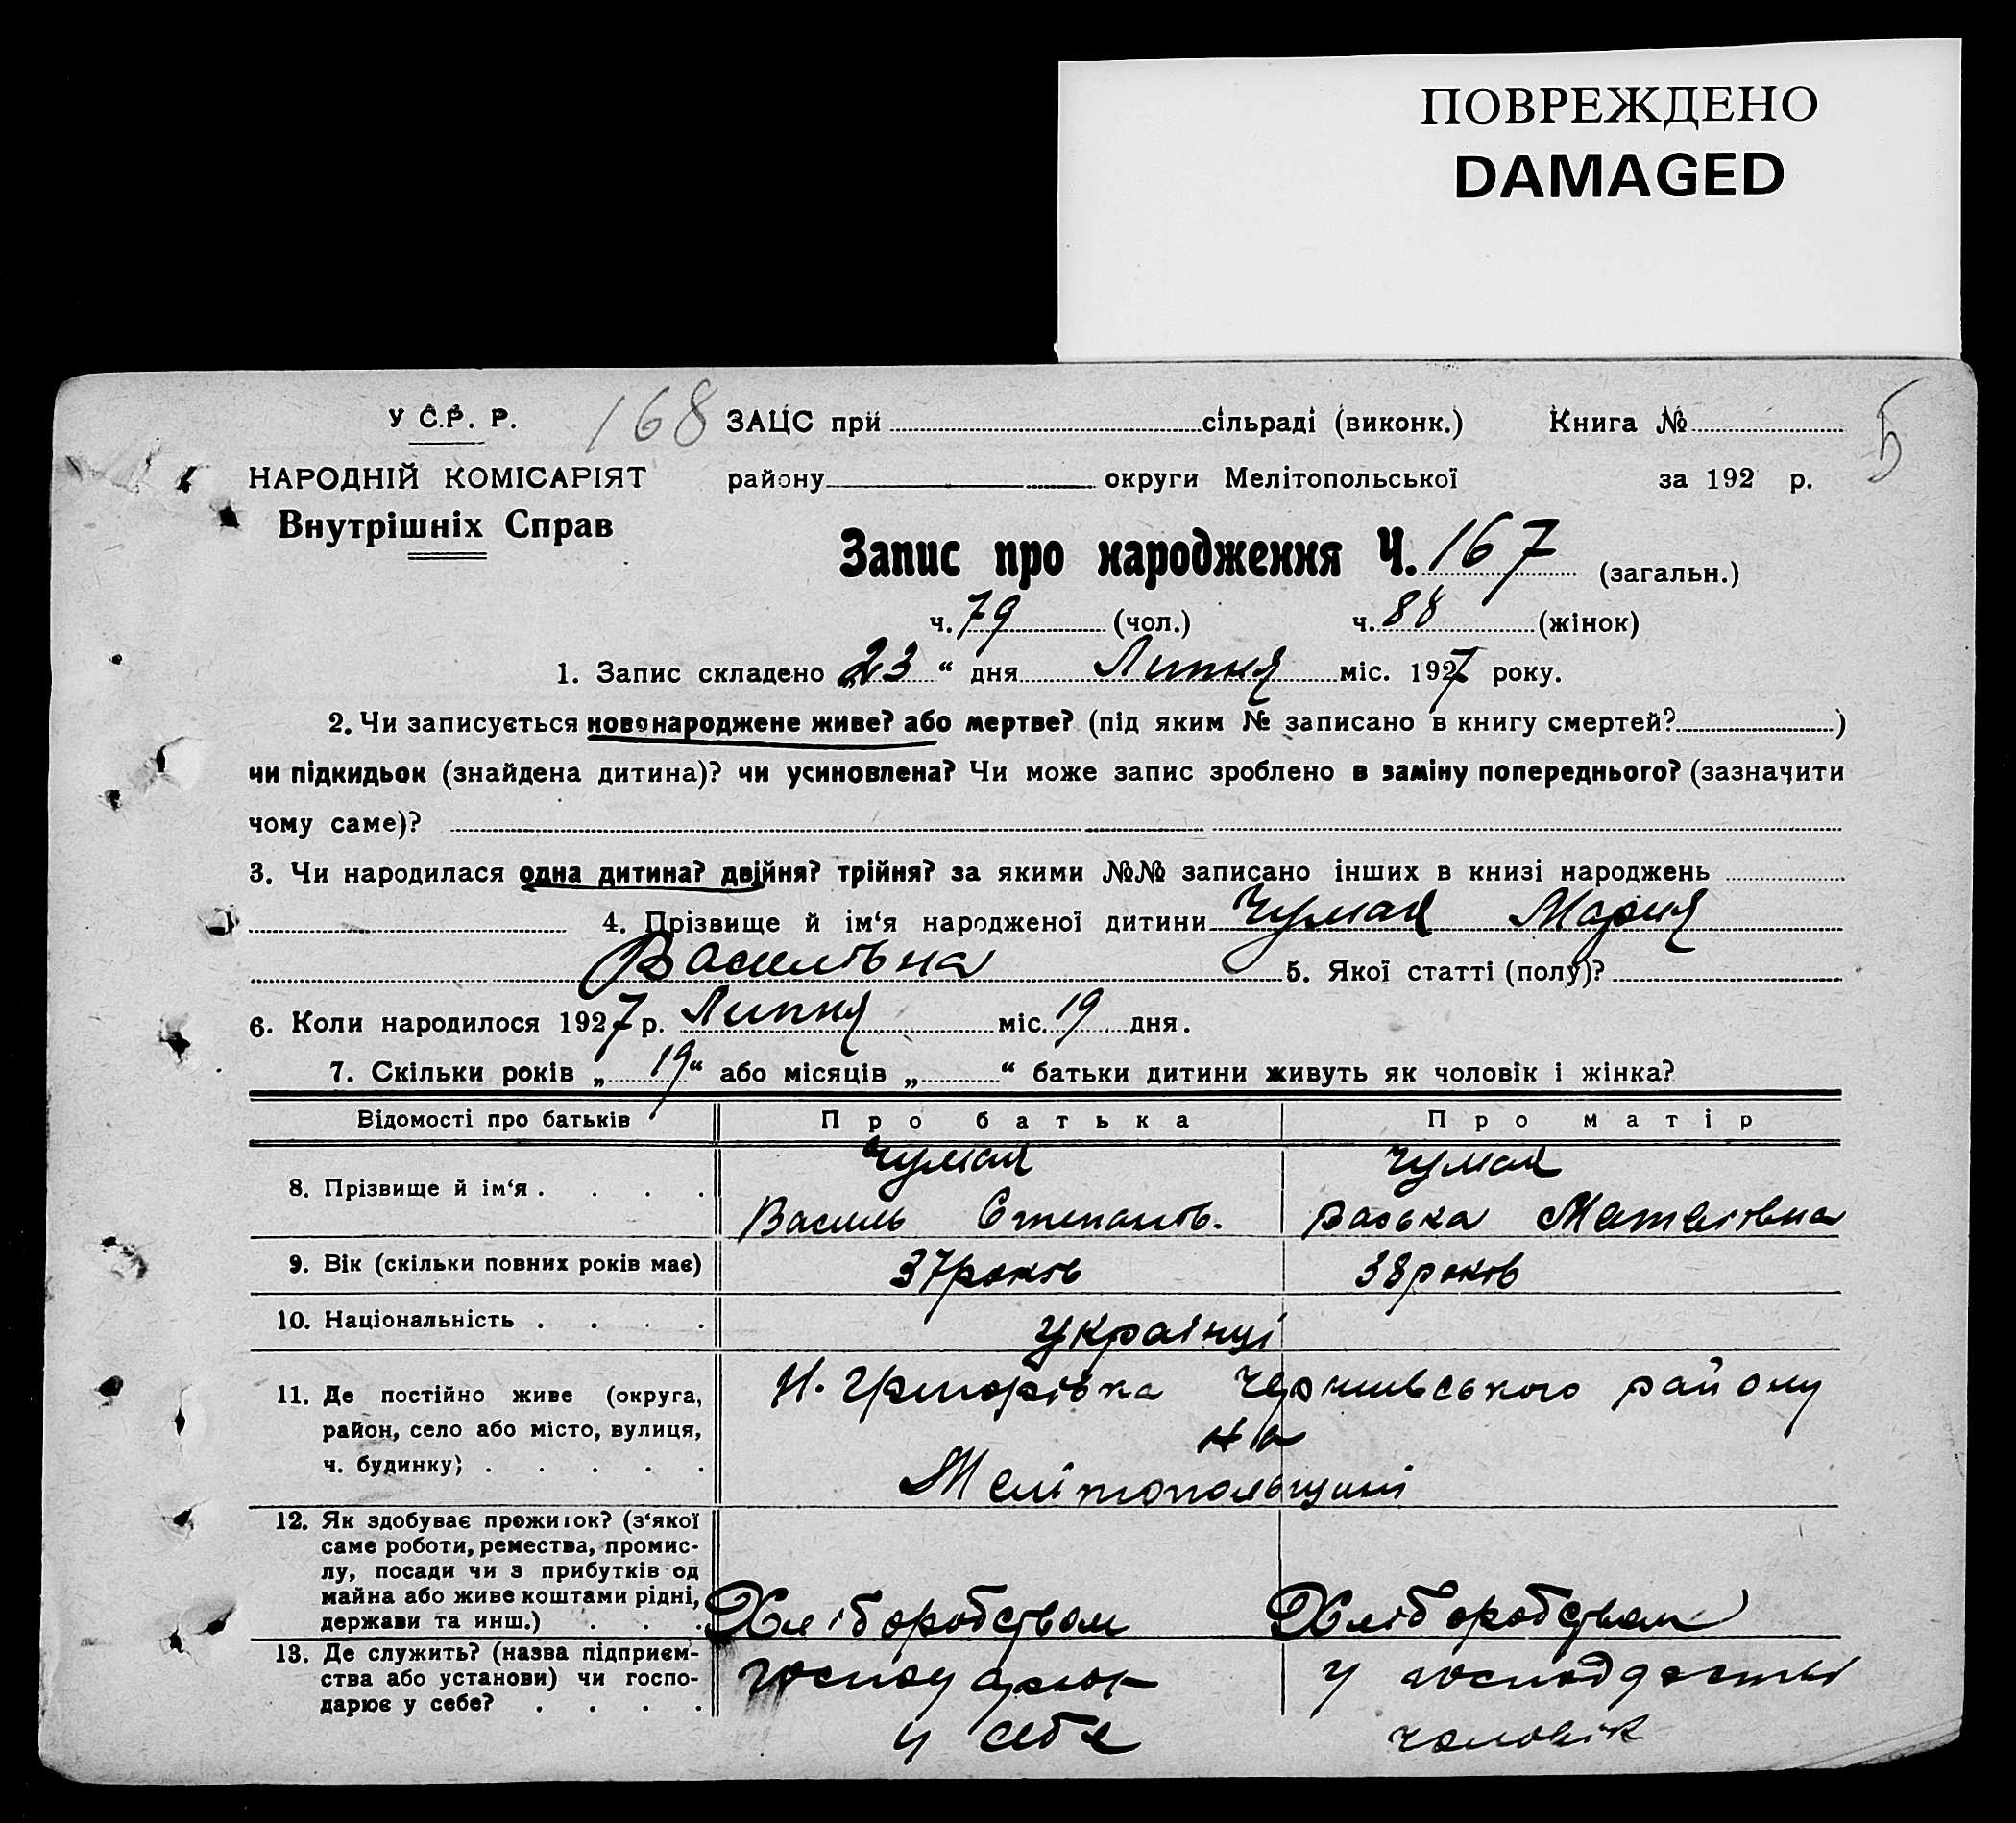 ПОВРЕЖДЕНО
DAMAGED
У С.Р. Р. 168 ЗАЦС при сільраді (виконк.) Книга № Б
НАРОДНІЙ КОМІСАРІЯТ району округи Мелітопольської за 192 р.
Внутрішніх Справ
Запис про народження Ч. 167 (загальн.)
ч. 79 (чол.) ч. 88 (жінок)
1. Запис складено „23“ дня Липня міс. 1927 року.
2. Чи записується новонароджене живе? або мертве? (під яким № записано в книгу смертей? )
чи підкидьок (знайдена дитина)? чи усиновлена? Чи може запис зроблено в заміну попереднього? (зазначити
чому саме)?
3. Чи народилася одна дитина? двійня? трійня? за якими №№ записано інших в книзі народжень
4. Прізвище й ім‘я народженої дитини Чумак Мария
Василівна 5. Якої статті (полу)?
6. Коли народилося 1927 р. Липня міс. 19 дня.
7. Скільки років „19“ або місяців „ “ батьки дитини живуть як чоловік і жінка?
Відомості про батьків Про батька Про матір
Чумак Чумак
8. Прізвище й ім‘я . . . .
Василь Степанів. Матвіівна
9. Вік (скільки повних років має) 37 років 38 років
10. Національність . . . . Українці
11. Де постійно живе (округа, Н. Григорівка Чернигівського району
район, село або місто, вулиця, на
ч. будинку) . . . . . Мелітопольщині
12. Як здобуває прожиток? (з‘якої
саме роботи, ремества, промис-
лу, посади чи з прибутків од
майна або живе коштами рідні,
держави та инш.) . . . Хліборобством Хліборобством
13. Де служить? (назва підприєм-
ства або установи) чи госпо- у
дарює у себе? . . . .
у себе чоловік